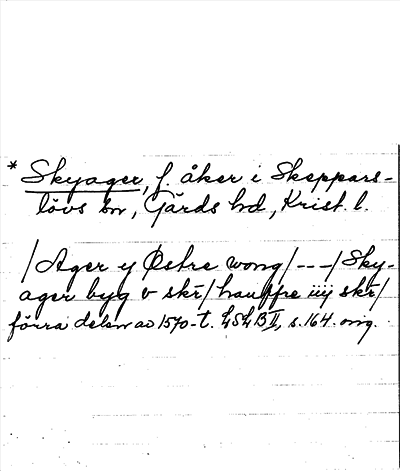 * Skyager, f. åker i Skeppars-
lövs sn, Gärds hd, Krist. l.
/Ager y Østre wong/---/Sky-
ager byg v skr̄/hauffre iiij skr̄/
förra delen av 1570-t. LSLB II, s. 164. orig.